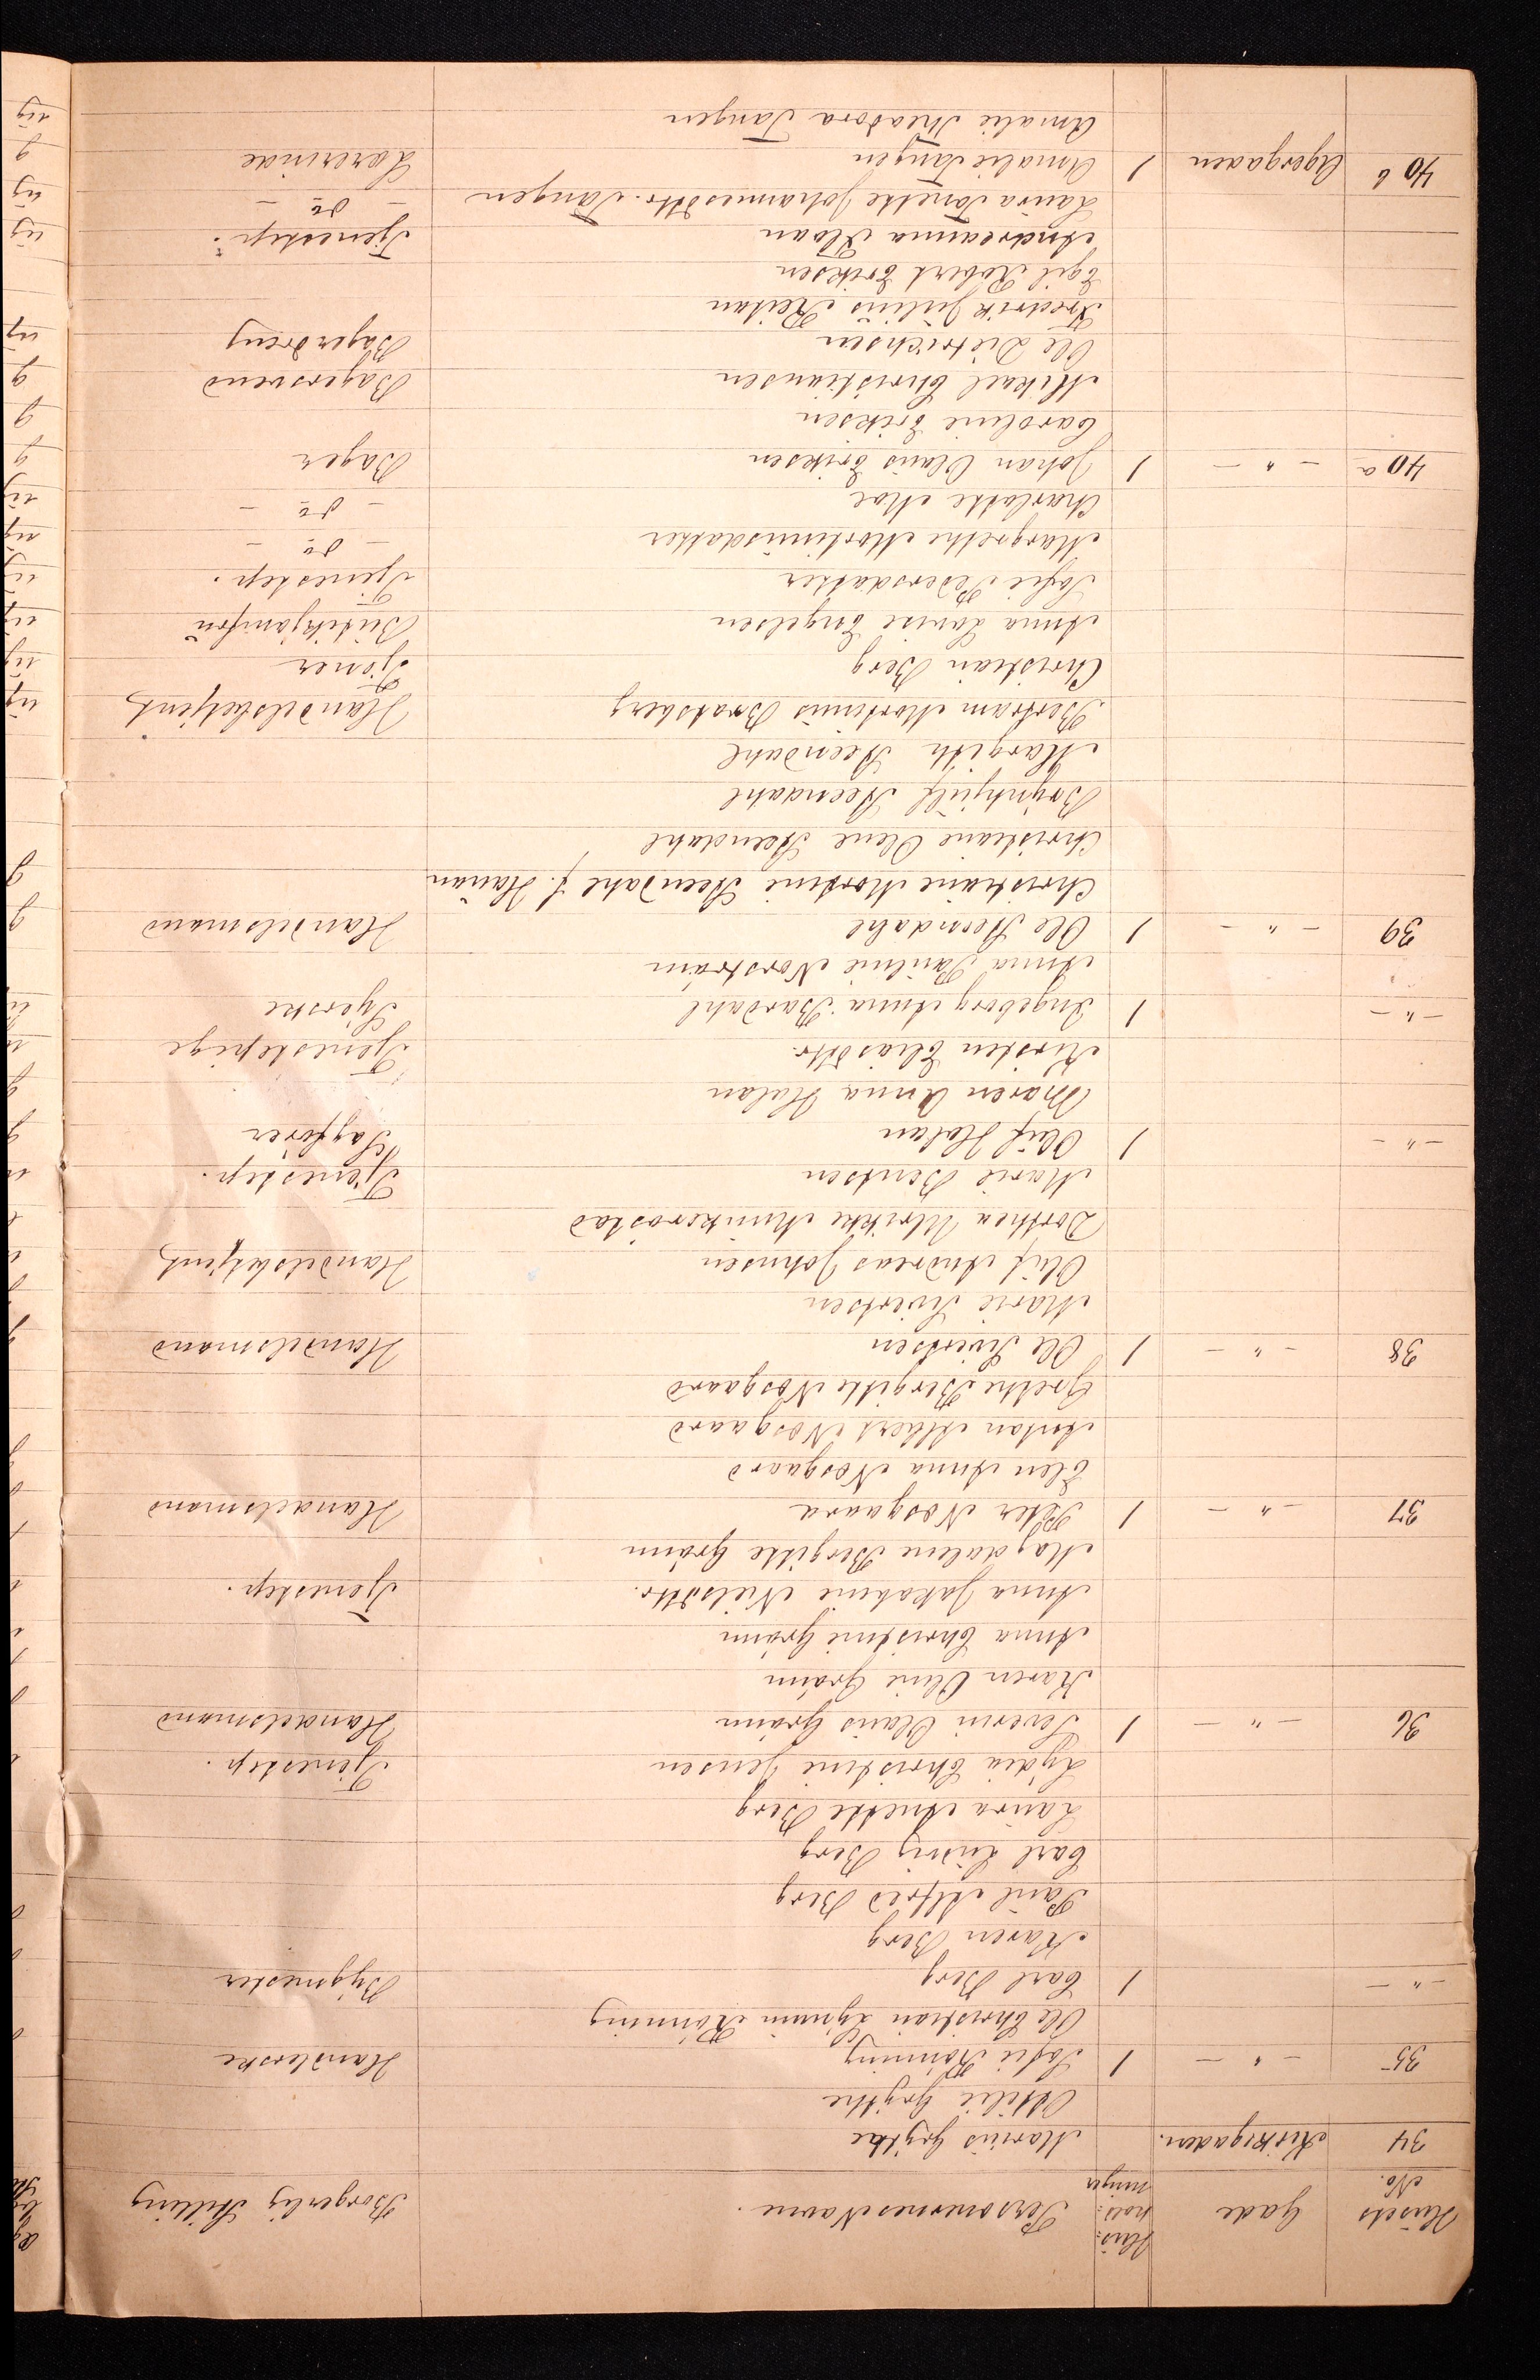 Husets No. Gade Hus: hold: ninger Personernes Navne. Borgerlig Stilling
34 Kirkegaden. Marius Grythe
Ottilie Grythe
35 - " - 1 Sofie Rønning Handlerske
Ole Christian Rønning
- " - 1 Carl Berg Bygmester
Karen Berg
Paul Alfred Berg
Carl Ludvig Berg
Laura Anette Berg
Lydia Christine Jensen Tjenestep.
36 - " - 1 Severin Olaus Gránn Handelsmand
Karen Oline Gránn
Anna Christine Gránn
Anna Jakobine Nielsdtr. Tjenestep.
Magdalene Bergitte Gránn
37 - " - 1 Peter Nosgaard Handelsmand
Elen Anna Nosgaard
Anton Albert Nosgaard
Grethe Bergitte Nosgaard
38 - " - 1 Ole Sivertsen Handelsmand
Marie Sivertsen
Oluf Andreas Johnsen Handelsbetjent
Dorthea Ulrikke Munkerøstad
Marie Bentsen Tjenestep.
- " - 1 Oluf Halan Sagfører
Maren Anna Halan
Kirsten Eliasdtr. Tjenestepige
- " - 1 Ingeborg Anna Bardahl Syerske
Anna Pauline Norstrám
39 - " - 1 Ole Steendahl Handelsmand
Christiane Mortine Steendahl f. Hanán
Christiane Olene Steendahl
Brynhjulf Steendahl
Margith Steendahl
Bertram Martinus Bratsberg Handelsbetjent
Christian Berg Tjener
Anna Lovise Engelsen Butikjomfru
Sofie Pedersdatter Tjenestep.
Margrethe Mortinusdatter - do -
Charlotte Moe - do -
40 a - " - 1 Johan Olaus Eriksen Bager
Caroline Eriksen
Mikael Christiansen Bagersvend
Ole Dietrichsen Bagerdreng
Fredrik Julius Reitan
Egil Robert Eriksen
Andreanna Moan Tjenestep.
Laura Tonette Johannesdtr. Tangen - do -
40 b Agergaden 1 Amalie Tangen Lærerinde
Amalie Theodora Tangen